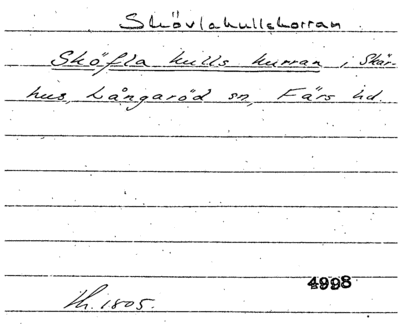 Skövlakullskorran
Sköfla kulls kurran, Skär-
hus, Långaröd sn, Färs hd.
4998
Th. 1805.